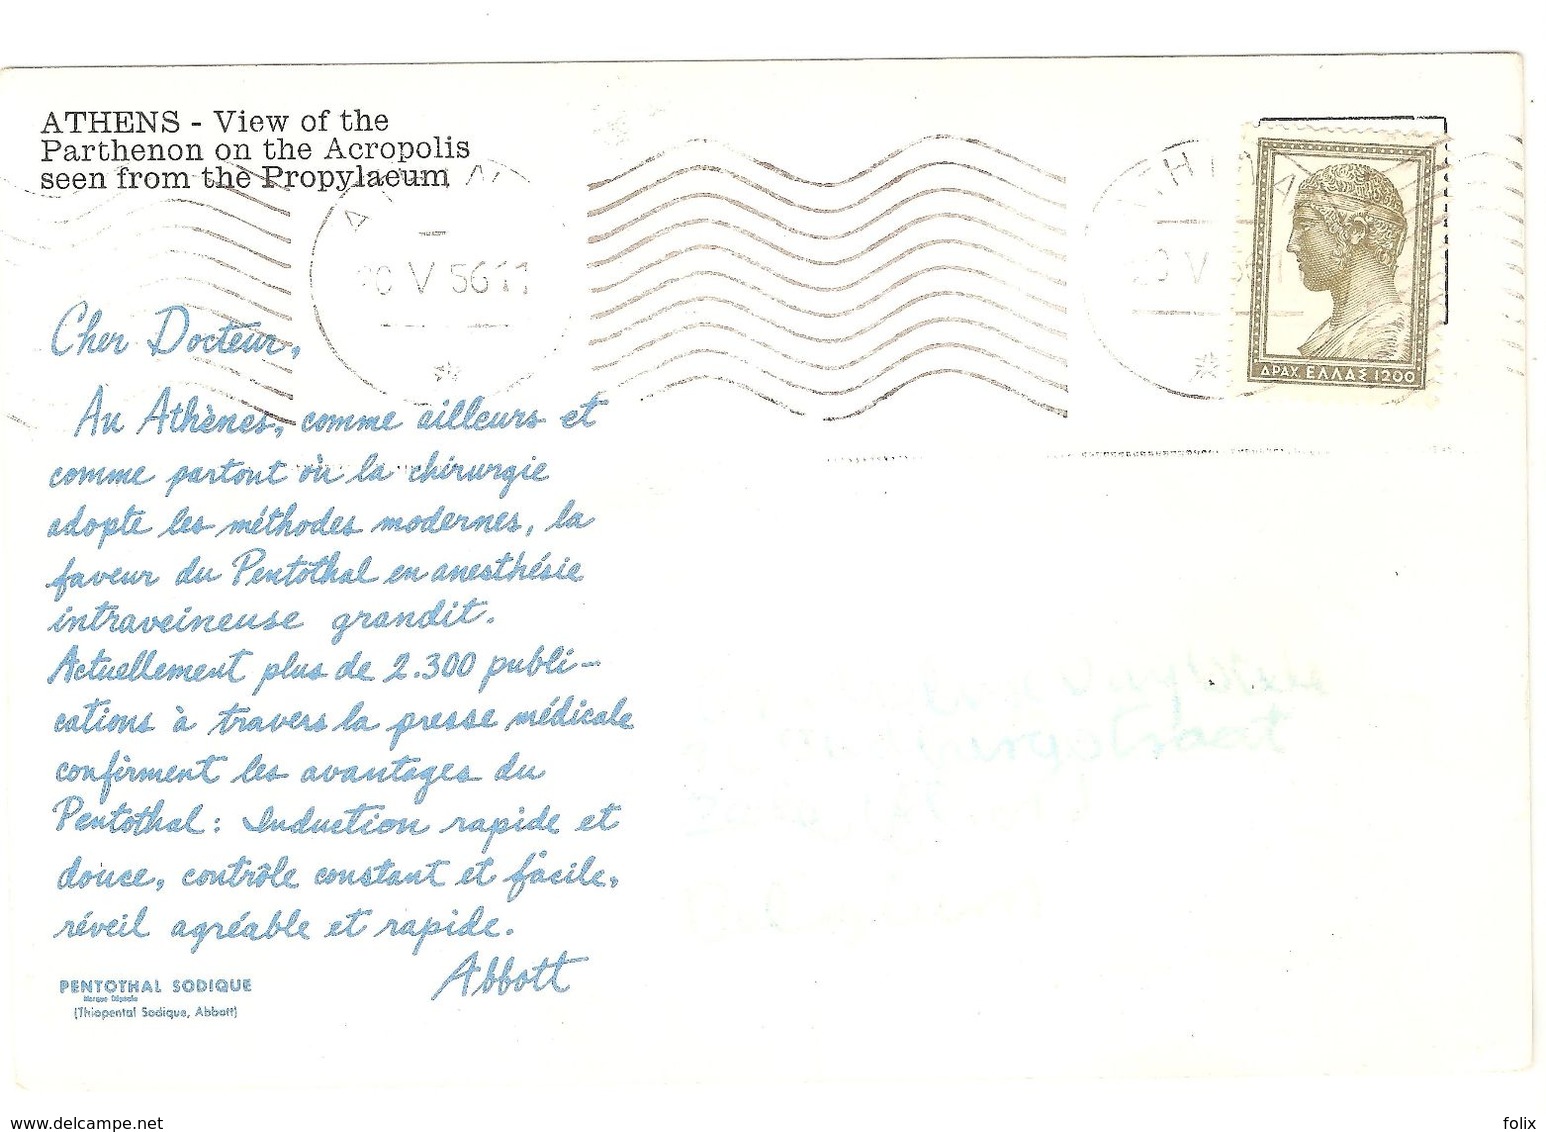 ATHENS - View of the
Parthenon on the Acropolis
seen from the Propylaeum
V 5611
V
ΔΡΑΧ ΕΛΛΑΣ 1200
Cher Docteur,
Au Athènes, comme ailleurs et
comme partout où la chirurgie
adopte les méthodes modernes, la
faveur du Pentothal en anesthésie
intraveineuse grandit.
Actuellement plus de 2.300 publi-
cations à travers la presse médicale
confirment les avantages du
Pentothal: Induction rapide et
douce, contrôle constant et facile,
réveil agréable et rapide.
Abbott
PENTOTHAL SODIQUE
Marque Déposée
(Thiopental Sodique, Abbott)
www.delcampe.net
folix